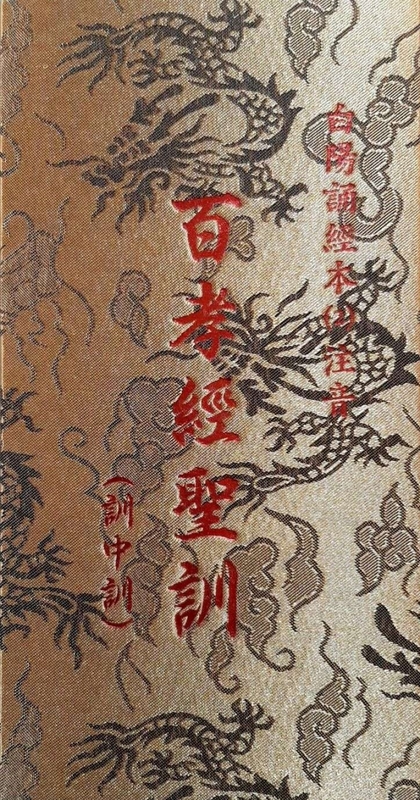 白陽誦經本(1)注音
百孝經聖訓
(訓中訓)